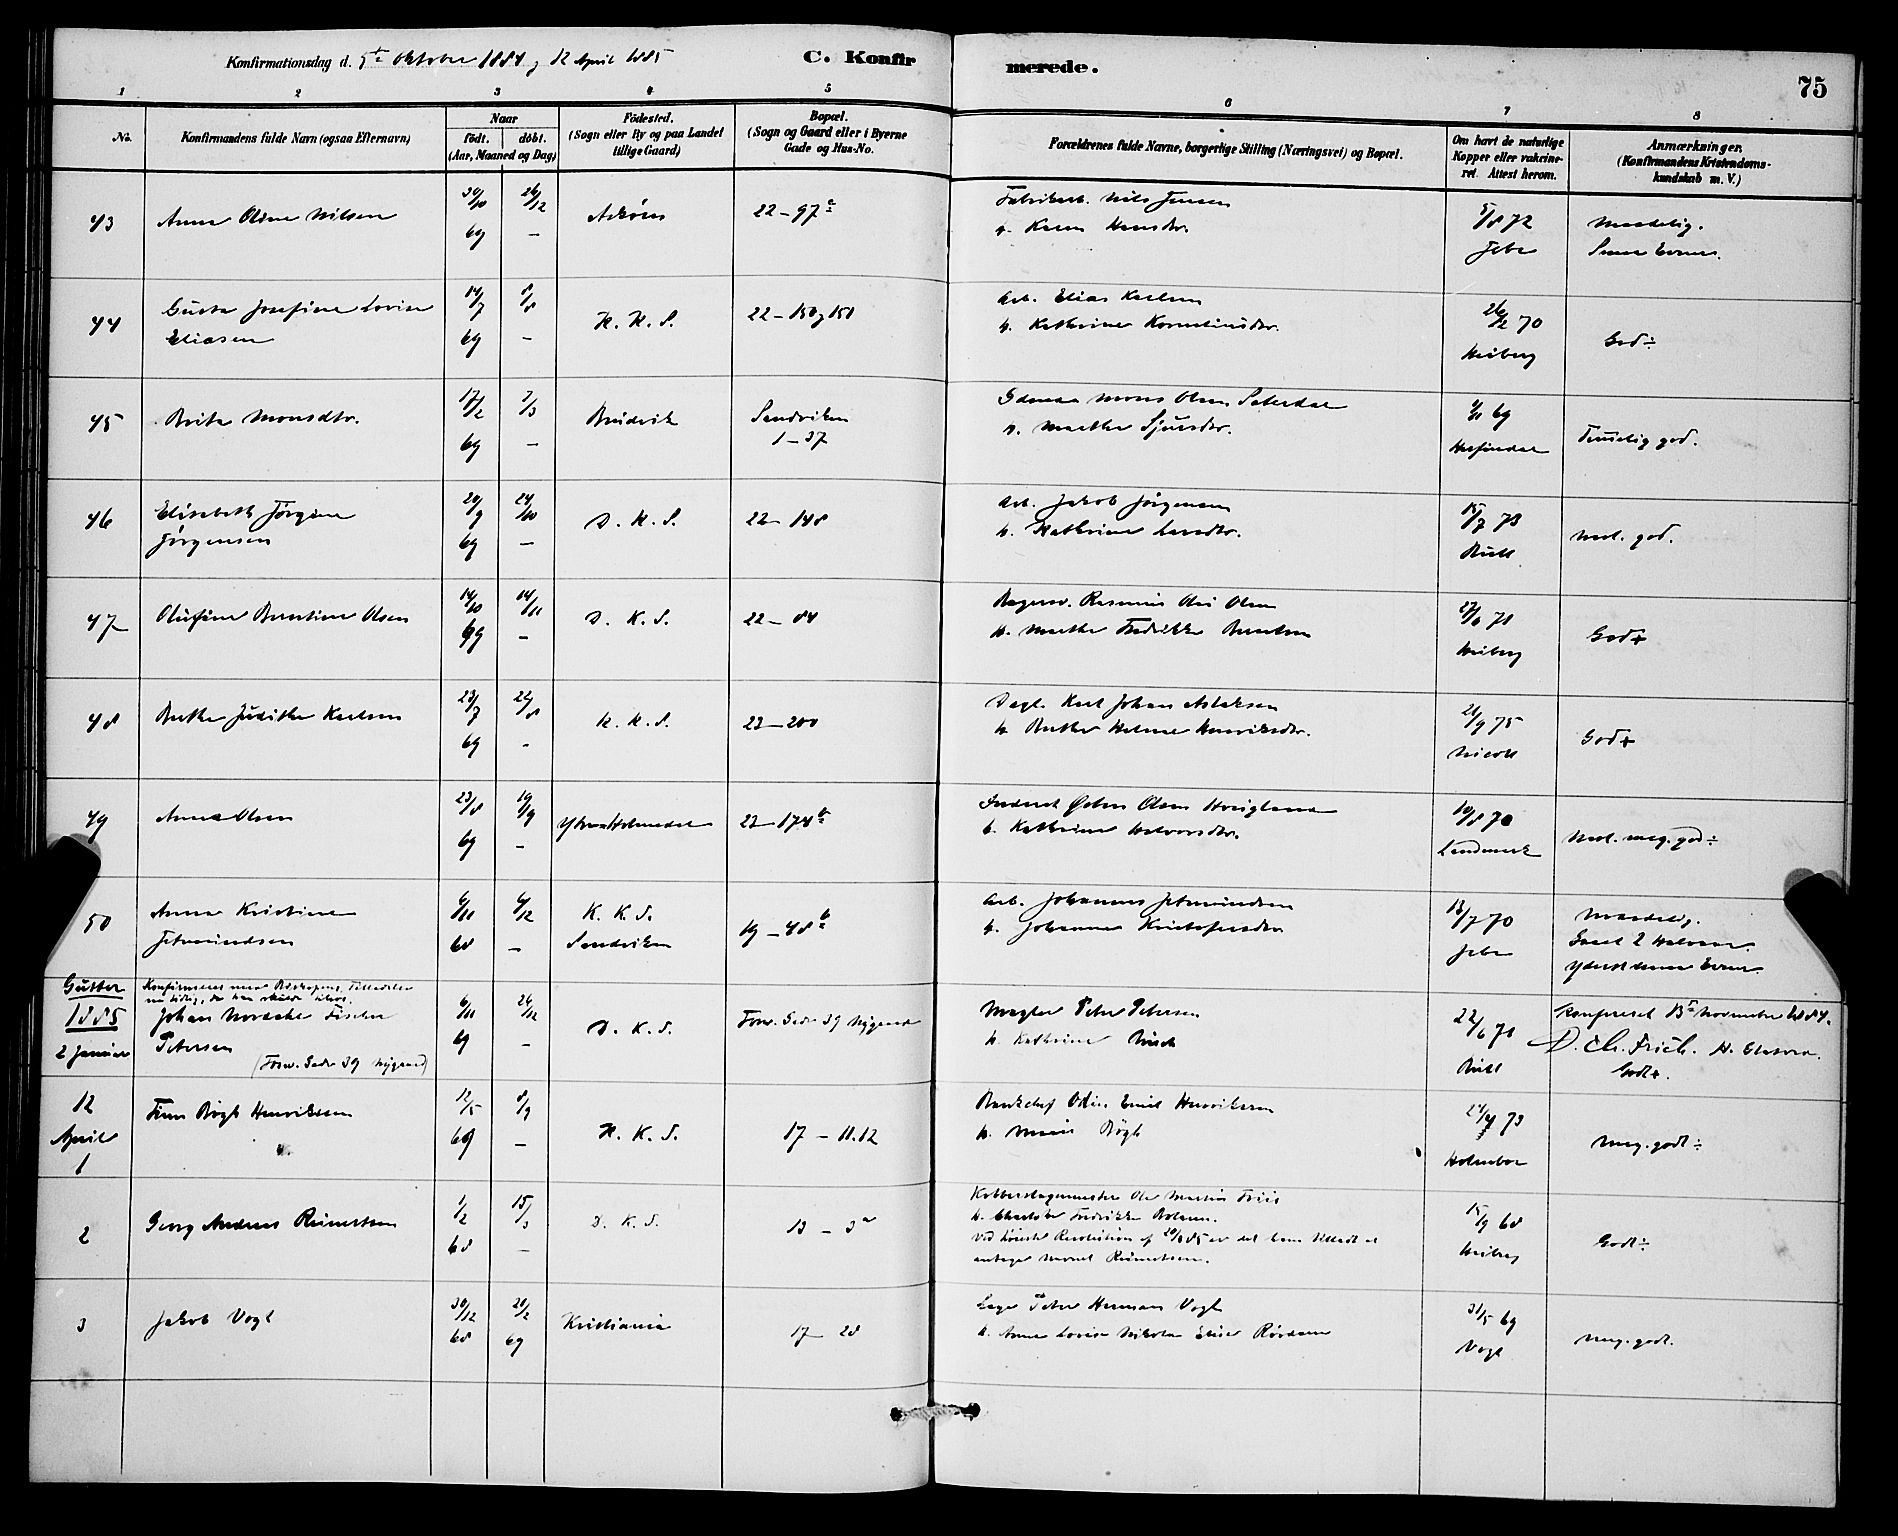 Konfirmationsdag d. 5te Oktober 1884 og 12 April 1885
C. Konfirmerede.
75
1 2 3 4 5 6 7 8
No.
Konfirmandens fulde Navn (ogsaa Efternavn)
Naar
födt. döbt.
(Aar, Maaned og Dag)
Födested.
(Sogn eller By og paa Landet
tillige Gaard)
Bopæl.
(Sogn og Gaard eller i Byerne
Gade og Hus-No.
Forældrenes fulde Navne, borgerlige Stilling (Næringsvei) og Bopæl.
Om havt de naturlige
Kopper eller vaksineret. Attest herom.
Anmærkninger.
(Konfirmandens Kristendomskundskab m. V.)
43 Anna Oline Nilsen 30/10 69 26/12 - Askøens 22 - 97a
Fabrikarb. Nils Jensen
h. Karen Hansdtr.
5/8 72 Jebe
Maadelig.
44 Gusta Josefine Lovise
Eliasen
14/7 69 8/8 - K. K. S. 22 - 150 og 151
Arb. Elias Karlsen
h. Kathrine Korneliusdtr.
26/2 70 Heiberg
God ÷
45 Brita Monsdtr. 17/2 69 7/3 - Bruvik Sandviken
1 - 37
Gdmand Mons Olsen
h. Marthe Sjursdtr.
69
Temelig god.
46 Elisabeth Jørgine
Jørgensen
20/9 69 24/10 - D. K. S. 22 - 148
Arb. Jakob Jørgensen
h. Kathrine Larsdtr.
15/7 73 Bull
Mel. god.
47 Olufine Berntine Olsen 14/10 69 14/11 - D. K. S. 22 - 84
Bagersv. Rasmus Olai Olsen
h. Marthe Fredrikke Berntsen
27/6 71 Heiberg
God +
48 Berthe Judithe Karlsen 23/7 69 22/8 - K. K. S. 22 - 200
Dagl. Karl Johan Aslaksen
h. Berthe Helene Henriksdtr.
21/9 75 Nicoll
God +
49 Anna Olsen 23/8 69 19/9 - Ytre Holmedal 22 - 174b
Olsen Hovgland
h. Kathrine Halvorsdtr.
10/8 70 Landmark
Mel. meg. god ÷
50 Anna Kristine
Jetmundsen
6/11 68 6/12 - K. K. S.
Sandviken 19 - 48b
Arb. Johannes Jetmundsen
h. Johanne Kristofersdtr.
13/7 70 Jebe
Maadelig.
Gutter
1885
2 Januar
Johan Nordahl Fischer
Petersen
(Forsv. Gade 39 Nygaard)
6/11 69 26/12 - D. K. S. Forsv. Gade 39 Nygaard
Mægler Peter Petersen
h. Kathrine Busch
22/6 71 Bull
Konfirmeret 13de November 1884.
D. Chr. Frich.
Godt +.
12
April
1 Finn Bøgh Henriksen 12/5 69 8/9 - K. K. S. 17 - 11.12
Bankchef Odin Emil Henriksen
h. Marie Bøgh
24/4 73 Holmboe
Meg. godt ÷
2 Georg Andreas Reimertsen 1/2 68 15/3 - D. K. S. 13 - 3a
Kobberslagermester Ole Martin Friis
h. Charlotte Fredrikke
Resolution af
antage Navnet Reimertsen.
15/9 68 Heiberg
Godt ÷
3 Jakob Vogt 30/12 68 21/2 69 Kristiania 17 - 28
Læge Peter Herman Vogt
h. Anna Lovise Nikola Elise Rørdam
31/5 69 Vogt
Meg. godt.